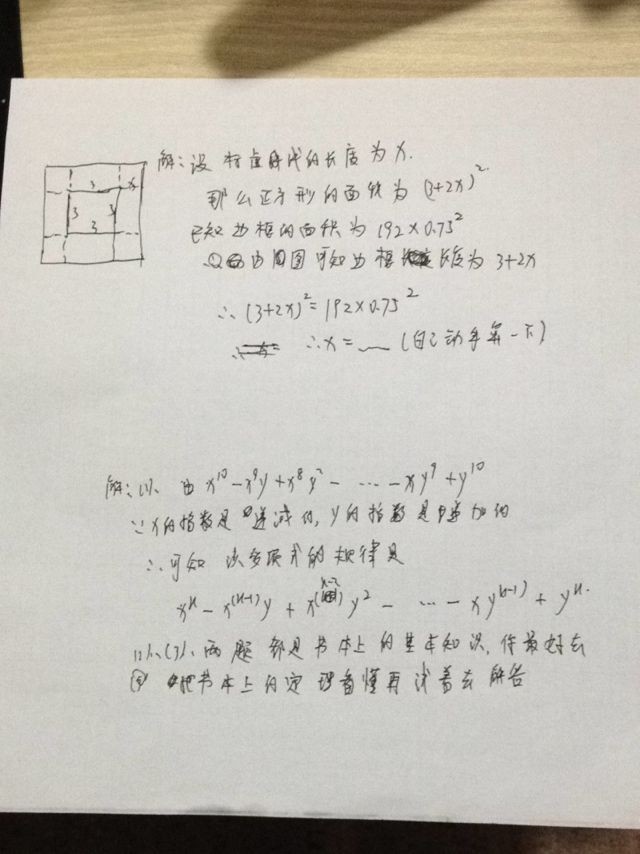 3 x
3 3
3
解:设 的长度为x.
那么正方形的面积为(3+2x)²
已知边框的面积为192×0.75²
由 图可知边框长度为3+2x
∴(3+2x)²=192×0.75²
∴x=___(自己动手算一下)
解:(1)、由x¹⁰-x⁹y+x⁸y²-…-xy⁹+y¹⁰
∵x的指数是递减的,y的指数是增加的
∴可知 该多项式的规律是
xⁿ-x⁽ⁿ⁻¹⁾y+x⁽ⁿ⁻²⁾y²-…-xy⁽ⁿ⁻¹⁾+yⁿ.
(2)、(3)、两题都是书本上的基本知识,你最好去
把书本上的定理看懂再试着去解答